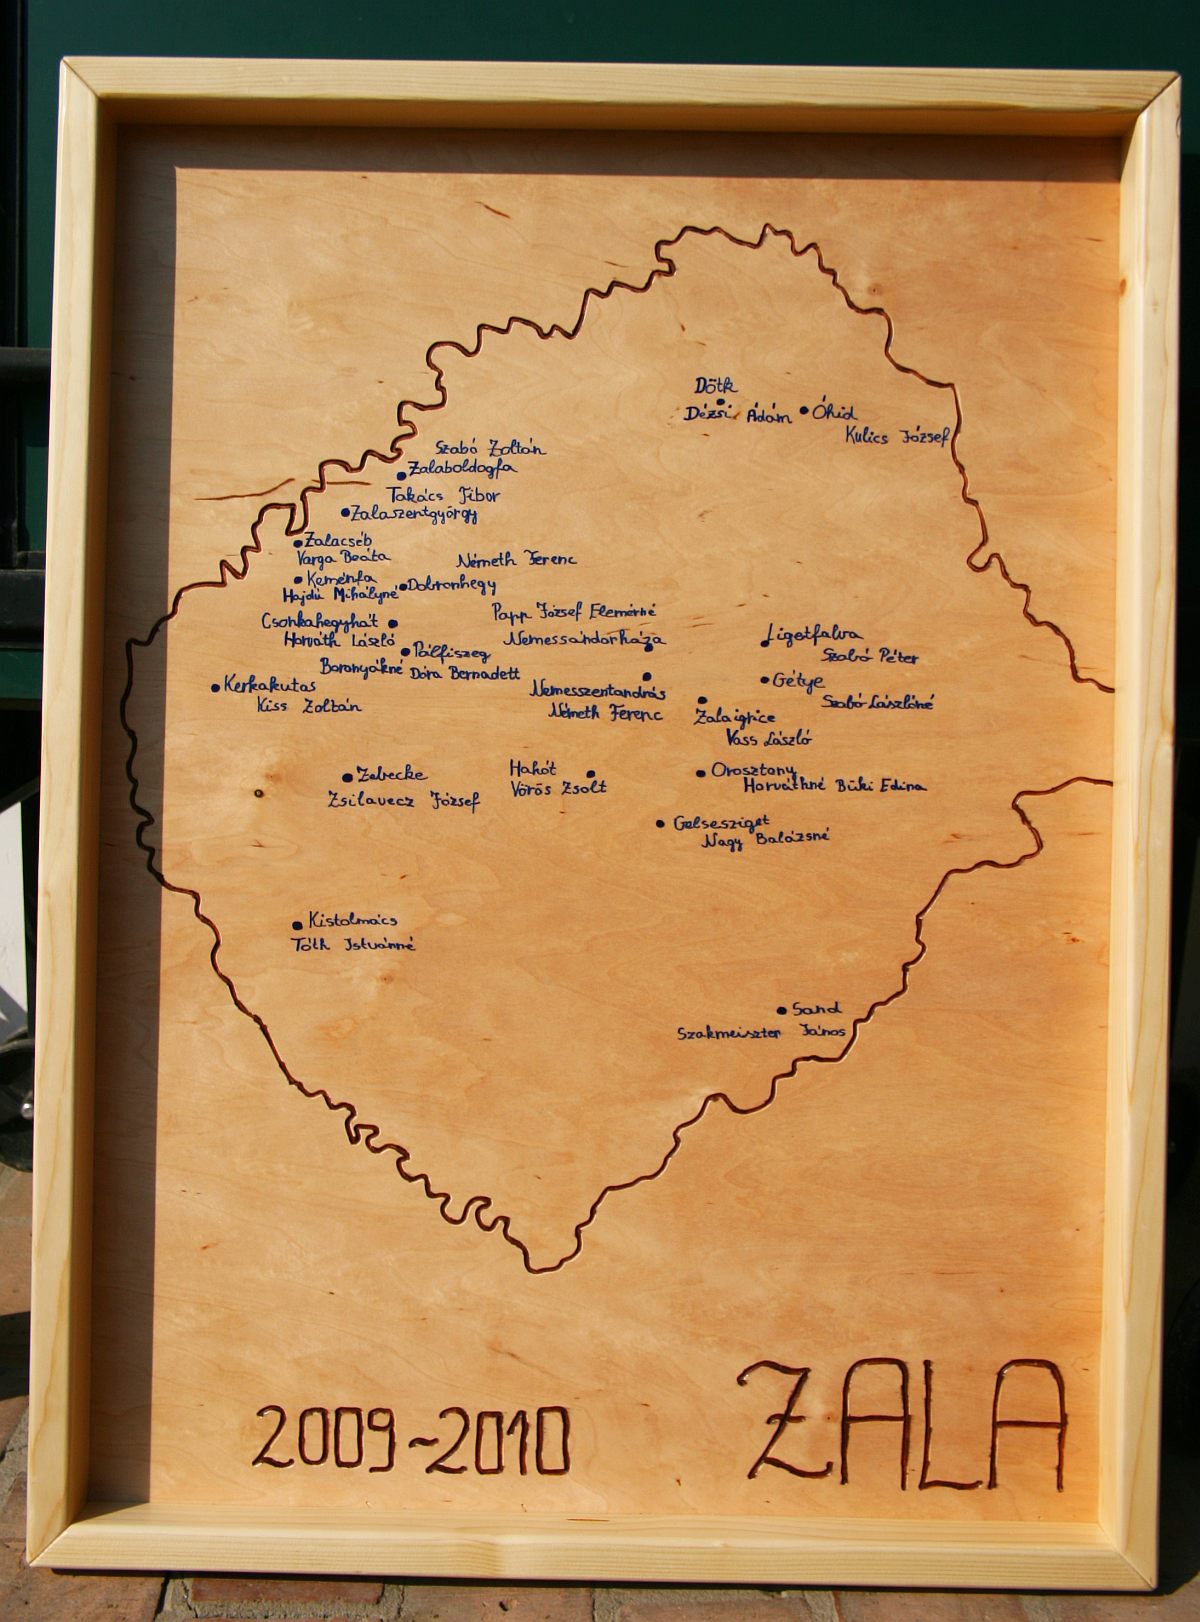 Dötk
Dézsi Ádám
Óhid
Kulics József
Szabó Zoltán
Zalaboldogfa
Takács Tibor
Zalaszentgyörgy
Zalacséb
Varga Beáta
Németh Ferenc
Keménfa
Dobronhegy
Hajdú Mihályné
Papp József Elemérné
Csonkahegyhát
Horváth László
Nemessándorháza
Ligetfalva
Szabó Péter
Pálfiszeg
Boronyákné Dóra Bernadett
Kerkakutas
Kiss Zoltán
Nemesszentandrás
Németh Ferenc
Gétye
Szabó Lászlóné
Zalaigrice
Vass László
Zebecke
Zsilavecz József
Hahót
Vörös Zsolt
Orosztony
Horváthné Büki Edina
Gelsesziget
Nagy Balázsné
Kistolmács
Tóth Istvánné
Sand
Szakmeiszter János
2009-2010
ZALA